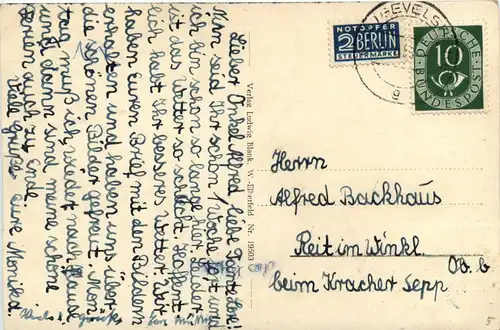 Lieber Onkel Alfred, liebe Tante Lore!
Nun seid Ihr schon 1 Woche fort und
ich bin schon so lange hier. Leider
ist das Wetter so schlecht. Hoffent-
lich habt Ihr besseres Wetter. Wir
haben Euren Brief mit den Bildern
erhalten und haben uns über
die schönen Bilder gefreut. Mon-
tag muß ich wieder nach Haus
und dann sind meine schöne
Ferien auch zu Ende.
Viele Grüße Eure Monika.
Verlag Ludwig Blank, W.-Elberfeld Nr. 19503
NOTOPFER
2 BERLIN
STEUERMARKE
GEVELS
DEUTSCHE
10
BUNDESPOST
Herrn
Alfred Backhaus
Reit im Winkl.
Ob. b.
beim Kracher Sepp
5